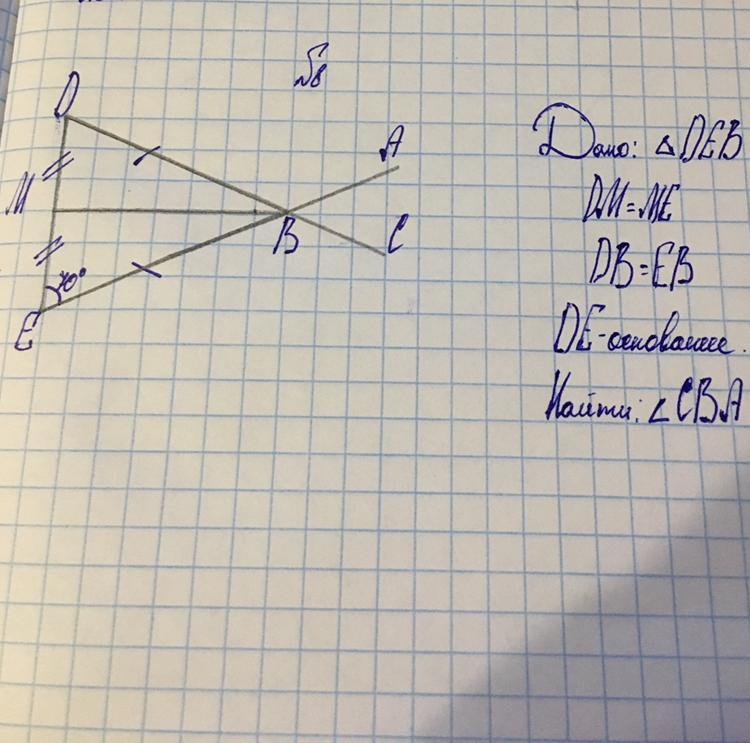 №8
D
A
M
B
C
E
Дано: △DEB
DM=ME
DB=EB
DE-основание.
Найти: ∠CBA